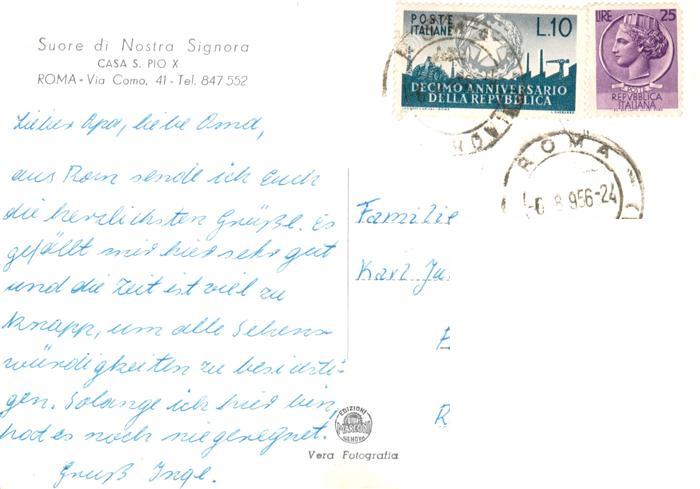 Suore di Nostra Signora
CASA S. PIO X
ROMA - Via Como, 41 - Tel. 847 552
POSTE ITALIANE L.10
DECIMO ANNIVERSARIO
DELLA REPVBBLICA
LIRE 25
POSTE
REPVBBLICA
ITALIANA
ROMA
8 956-24
Lieber Opa, liebe Oma,
aus Rom sende ich Euch
die herzlichsten Grüße. Es
gefällt mir hier sehr gut
und die Zeit ist viel zu
knapp, um alle Sehens-
würdigkeiten zu besichti-
gen. Solange ich hier bin,
hat es noch nie geregnet.
Gruß Inge.
Familie
Karl Ju
E
R
EDIZIONI
GENOVA
Vera Fotografia